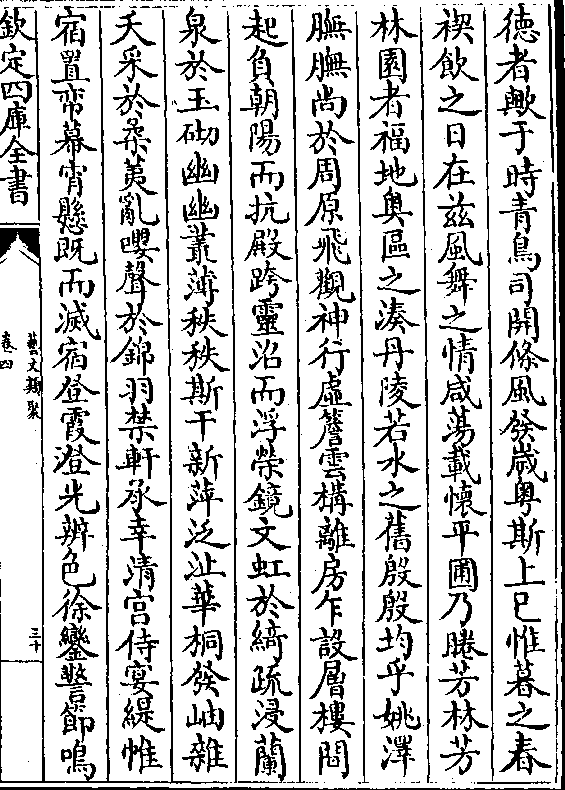 德者歟于時青鳥司開條風發歲粤斯上巳惟暮之春
禊飲之日在兹風舞之情咸蕩載懷平圃乃睠芳林芳
林園者福地奥區之湊丹陵若水之舊殷殷均乎姚澤
膴膴尚於周原飛觀神行虚簷雲構離房乍設層樓間
起負朝陽而抗殿跨靈沼而浮榮鏡文虹於綺疏浸蘭
泉於玉砌幽幽叢薄秩秩斯干新萍泛沚華桐發岫雜
夭采於柔荑亂嚶聲於錦羽禁軒承幸清宫侍宴緹帷
宿置帟幕宵懸既而滅宿登霞澄光辨色徐鑾警節鳴
欽定四庫全書
藝文類聚
卷四
三十